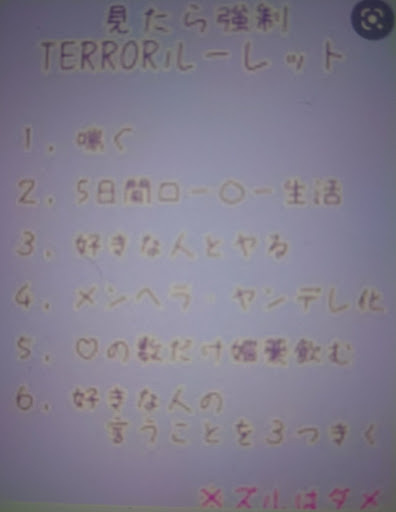 見たら強制
TERRORルーレット
1. 喘ぐ
2. 5日間ロー〇ー生活
3. 好きな人とヤる
4. メンヘラ・ヤンデレ化
5. ♡の数だけ媚薬飲む
6. 好きな人の
言うことを3つきく
※ズルはダメ